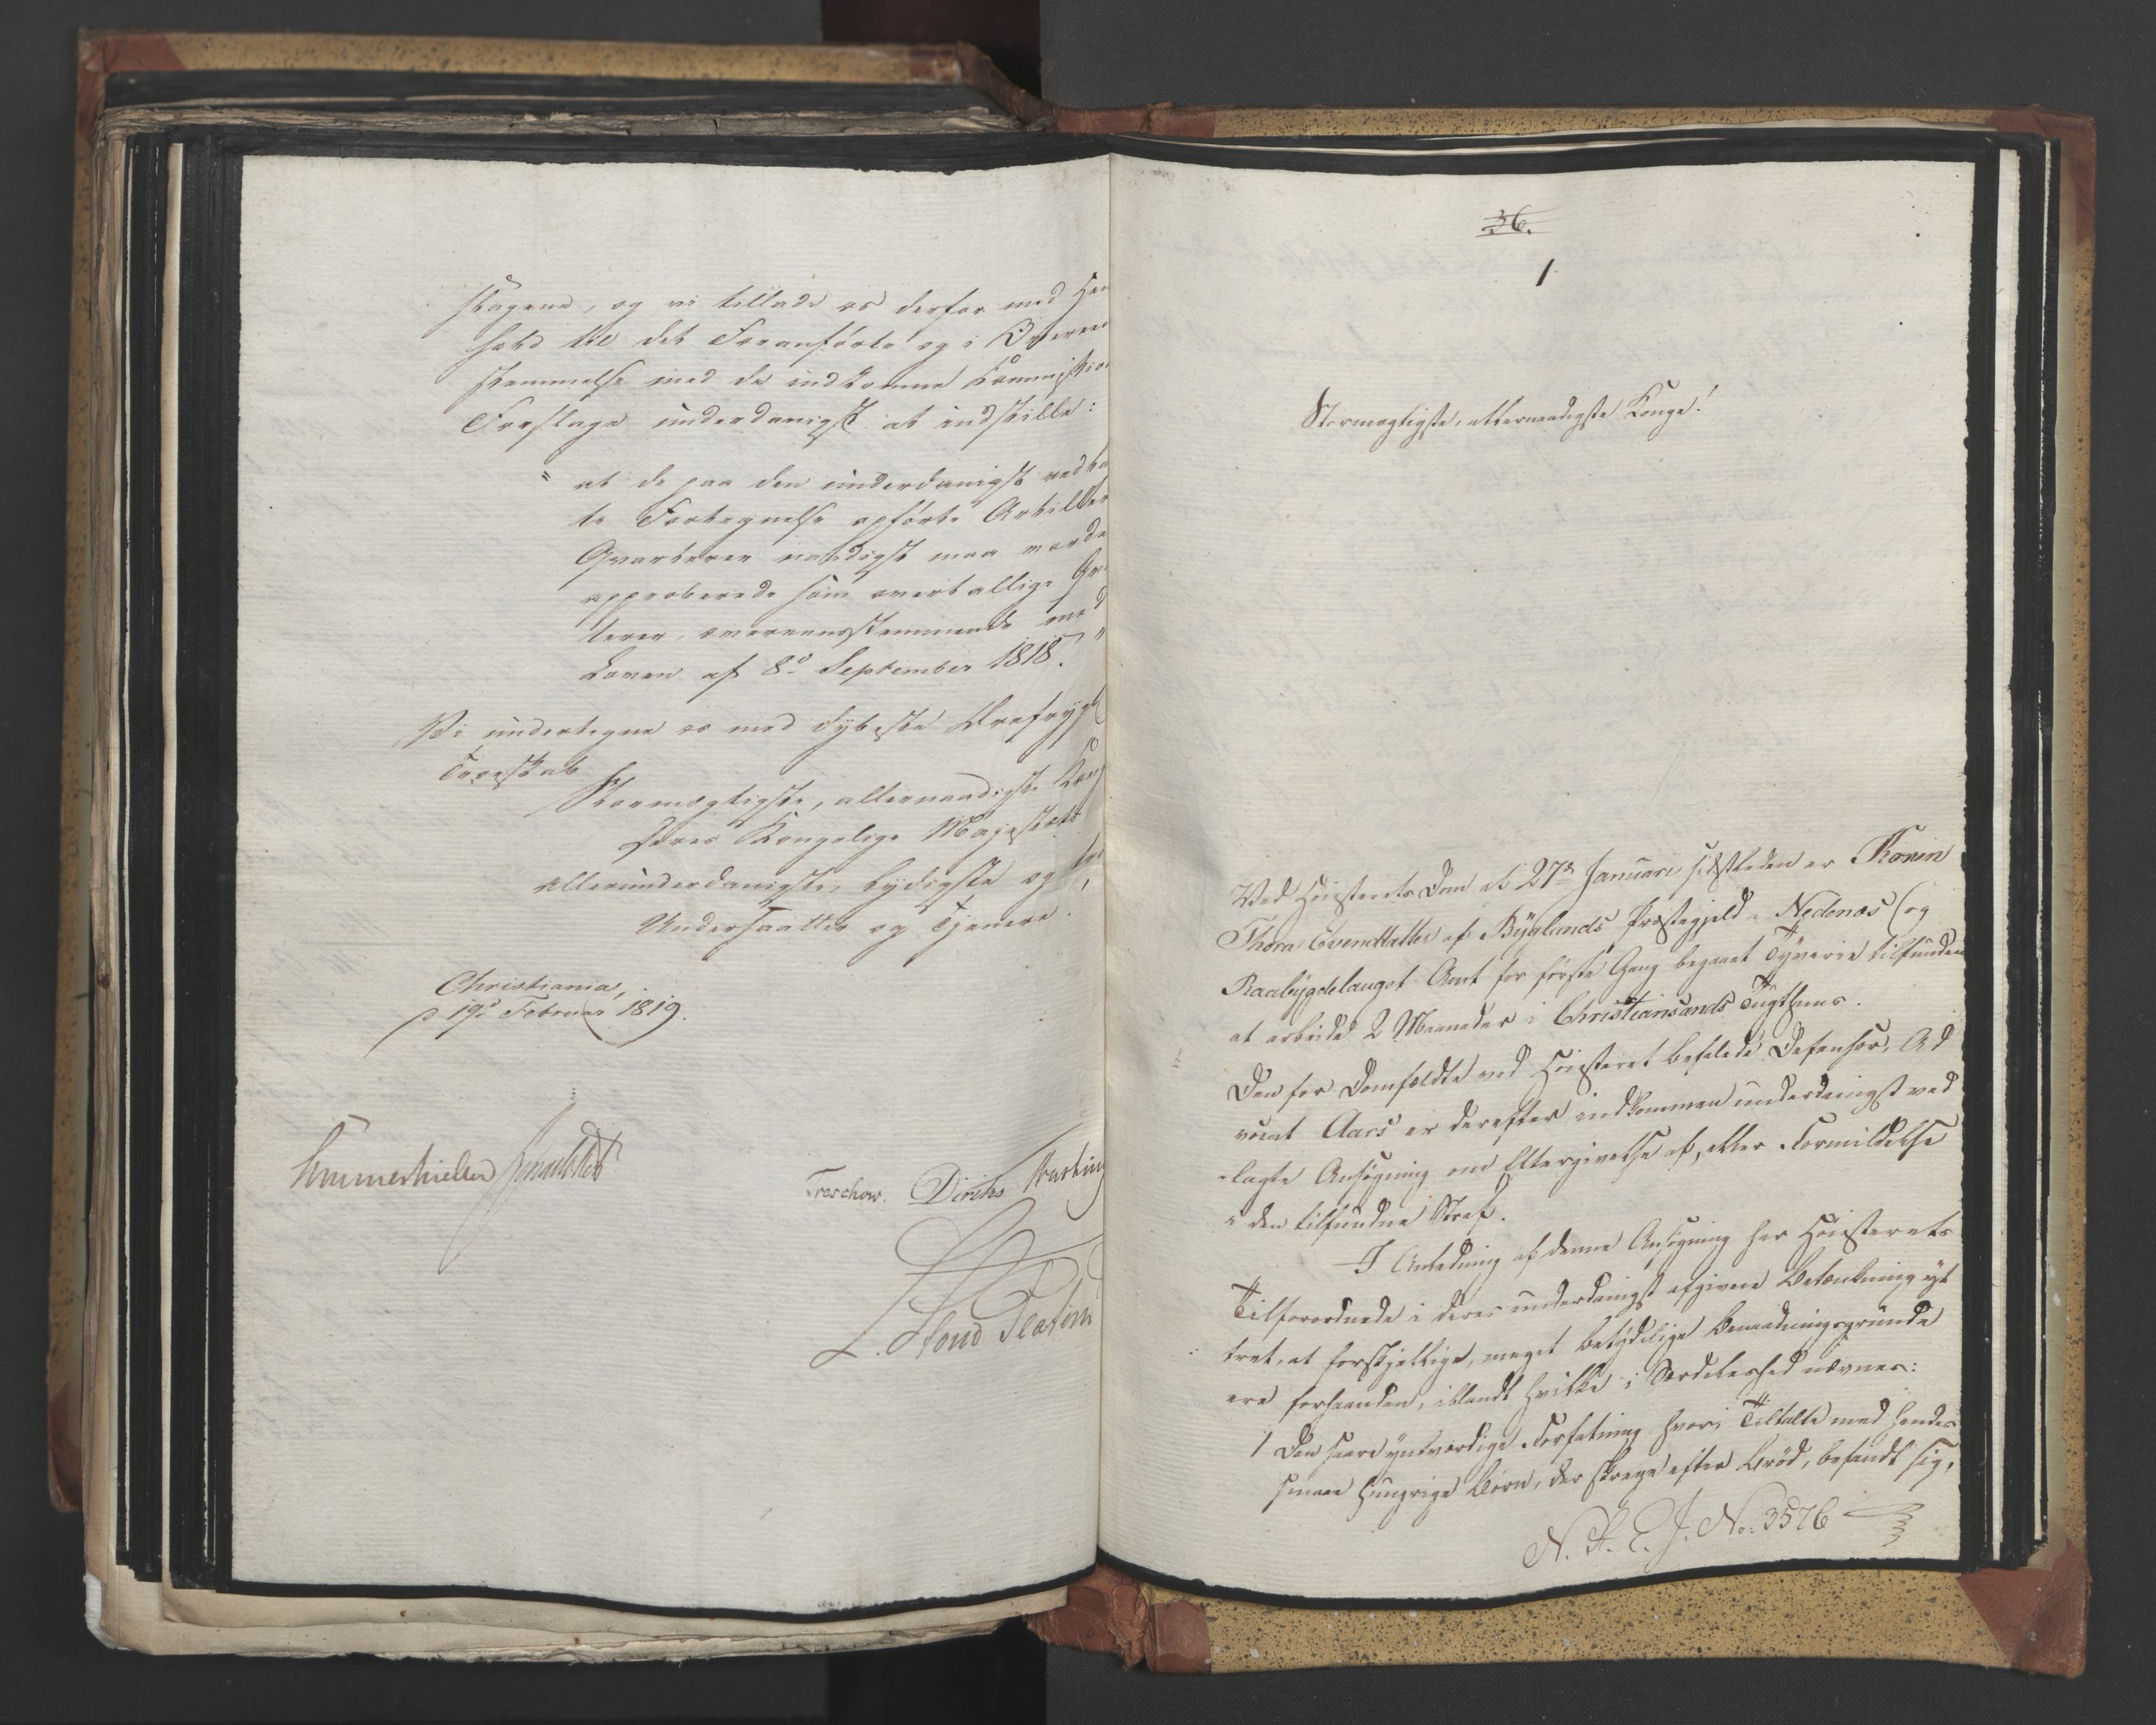 skagene, og vi tillade os derfor med Hen
hold til det Foranførte og i Overeens
stemmelse med de indkomne Commissions
Forslage underdanigst at indstille:
" at de paa den underdanigst vedhæf
te Fortegnelse opførte Artillerie
Qvarterer naadigst maa vorde
approberede som overtallige Qvar
terer, overeensstemmende med
Loven af 8de September 1818. "
Vi undertegne os med dybeste Ærefrygt
Troeskab
Stormægtigste, allernaadigste Kong
Deres Kongelige Majestæts
allerunderdanigste, lydigste og troe
Undersaatter og Tjenere.
Christiania,
d 19de Februar 1819.
Sommerhielm
Treschow. Diriks
L. Stoud Platou
36.
1
Stormægtigste, allernaadigste Konge!
Ved Høiesterets Dom af 27de Januari sidstleden er Konen
Thora Evendtatter af Byglands Præstegjeld i Nedenæs og
Raabygdelauget Amt for første Gang begaaet Tyverie tilfunden
at arbeide 2 Maaneder i Christiansands Tugthuus.
Den for Domfældte ved Høiesteret befalede Defensor, Ad
vocat Aars er derefter indkommen underdanigst ved
-lagte Ansøgning om Eftergivelse af, eller Formildelse
i den tilfundne Straf.
I Anledning af denne Ansøgning har Høiesterets
Tilforordnede i deres underdanigst afgivne Betænkning yt
tret, at forskjellige, meget betydelige Benaadningsgrunde
ere forhaanden, iblandt hvilke i Særdeleshed nævnes:
1 Den saare ynkværdige Forfatning hvori Tiltalte med hendes
smaae hungrige Børn, der skrege efter Brød, befandt sig,
N. St. E. J. No. 3576